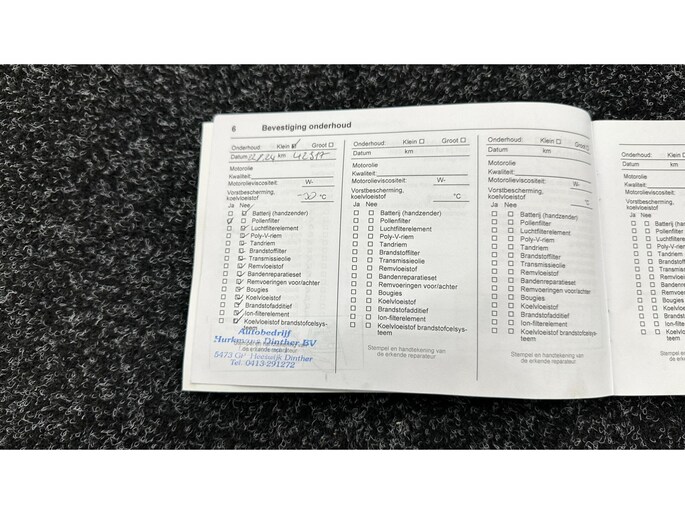 6 Bevestiging onderhoud
Onderhoud: Klein Groot
Datum km
Motorolie
Kwaliteit:
Motorolieviscositeit: W-
Vorstbescherming,
koelvloeistof °C
Ja Nee
Batterij (handzender)
Pollenfilter
Luchtfilterelement
Poly-V-riem
Tandriem
Brandstoffilter
Transmissieolie
Remvloeistof
Bandenreparatieset
Remvoeringen voor/achter
Bougies
Koelvloeistof
Brandstofadditief
Ion-filterelement
Koelvloeistof brandstofcelsys-
teem
Autobedrijf
Hurkmans Dinther BV
5473 GP Heeswijk Dinther
Tel. 0413-291272
Onderhoud: Klein Groot
Datum km
Motorolie
Kwaliteit:
Motorolieviscositeit: W-
Vorstbescherming,
koelvloeistof °C
Ja Nee
Batterij (handzender)
Pollenfilter
Luchtfilterelement
Poly-V-riem
Tandriem
Brandstoffilter
Transmissieolie
Remvloeistof
Bandenreparatieset
Remvoeringen voor/achter
Bougies
Koelvloeistof
Brandstofadditief
Ion-filterelement
Koelvloeistof brandstofcelsys-
teem
Stempel en handtekening van
de erkende reparateur
Onderhoud: Klein Groot
Datum km
Motorolie
Kwaliteit:
Motorolieviscositeit: W-
Vorstbescherming,
koelvloeistof °C
Ja Nee
Batterij (handzender)
Pollenfilter
Luchtfilterelement
Poly-V-riem
Tandriem
Brandstoffilter
Transmissieolie
Remvloeistof
Bandenreparatieset
Remvoeringen voor/achter
Bougies
Koelvloeistof
Brandstofadditief
Ion-filterelement
Koelvloeistof brandstofcelsys-
teem
Stempel en handtekening van
de erkende reparateur
Onderhoud: Klein
Datum km
Motorolie
Kwaliteit:
Motorolieviscositeit:
Vorstbescherming,
koelvloeistof
Ja Nee
Batterij (handz
Pollenfilter
Luchtfilterelem
Poly-V-riem
Tandriem
Brandstoffi
Transmissi
Remvloeis
Bandenre
Remvoeri
Bougies
Koelvloe
Brandst
Ion-filte
Koelvl
teem
Ste